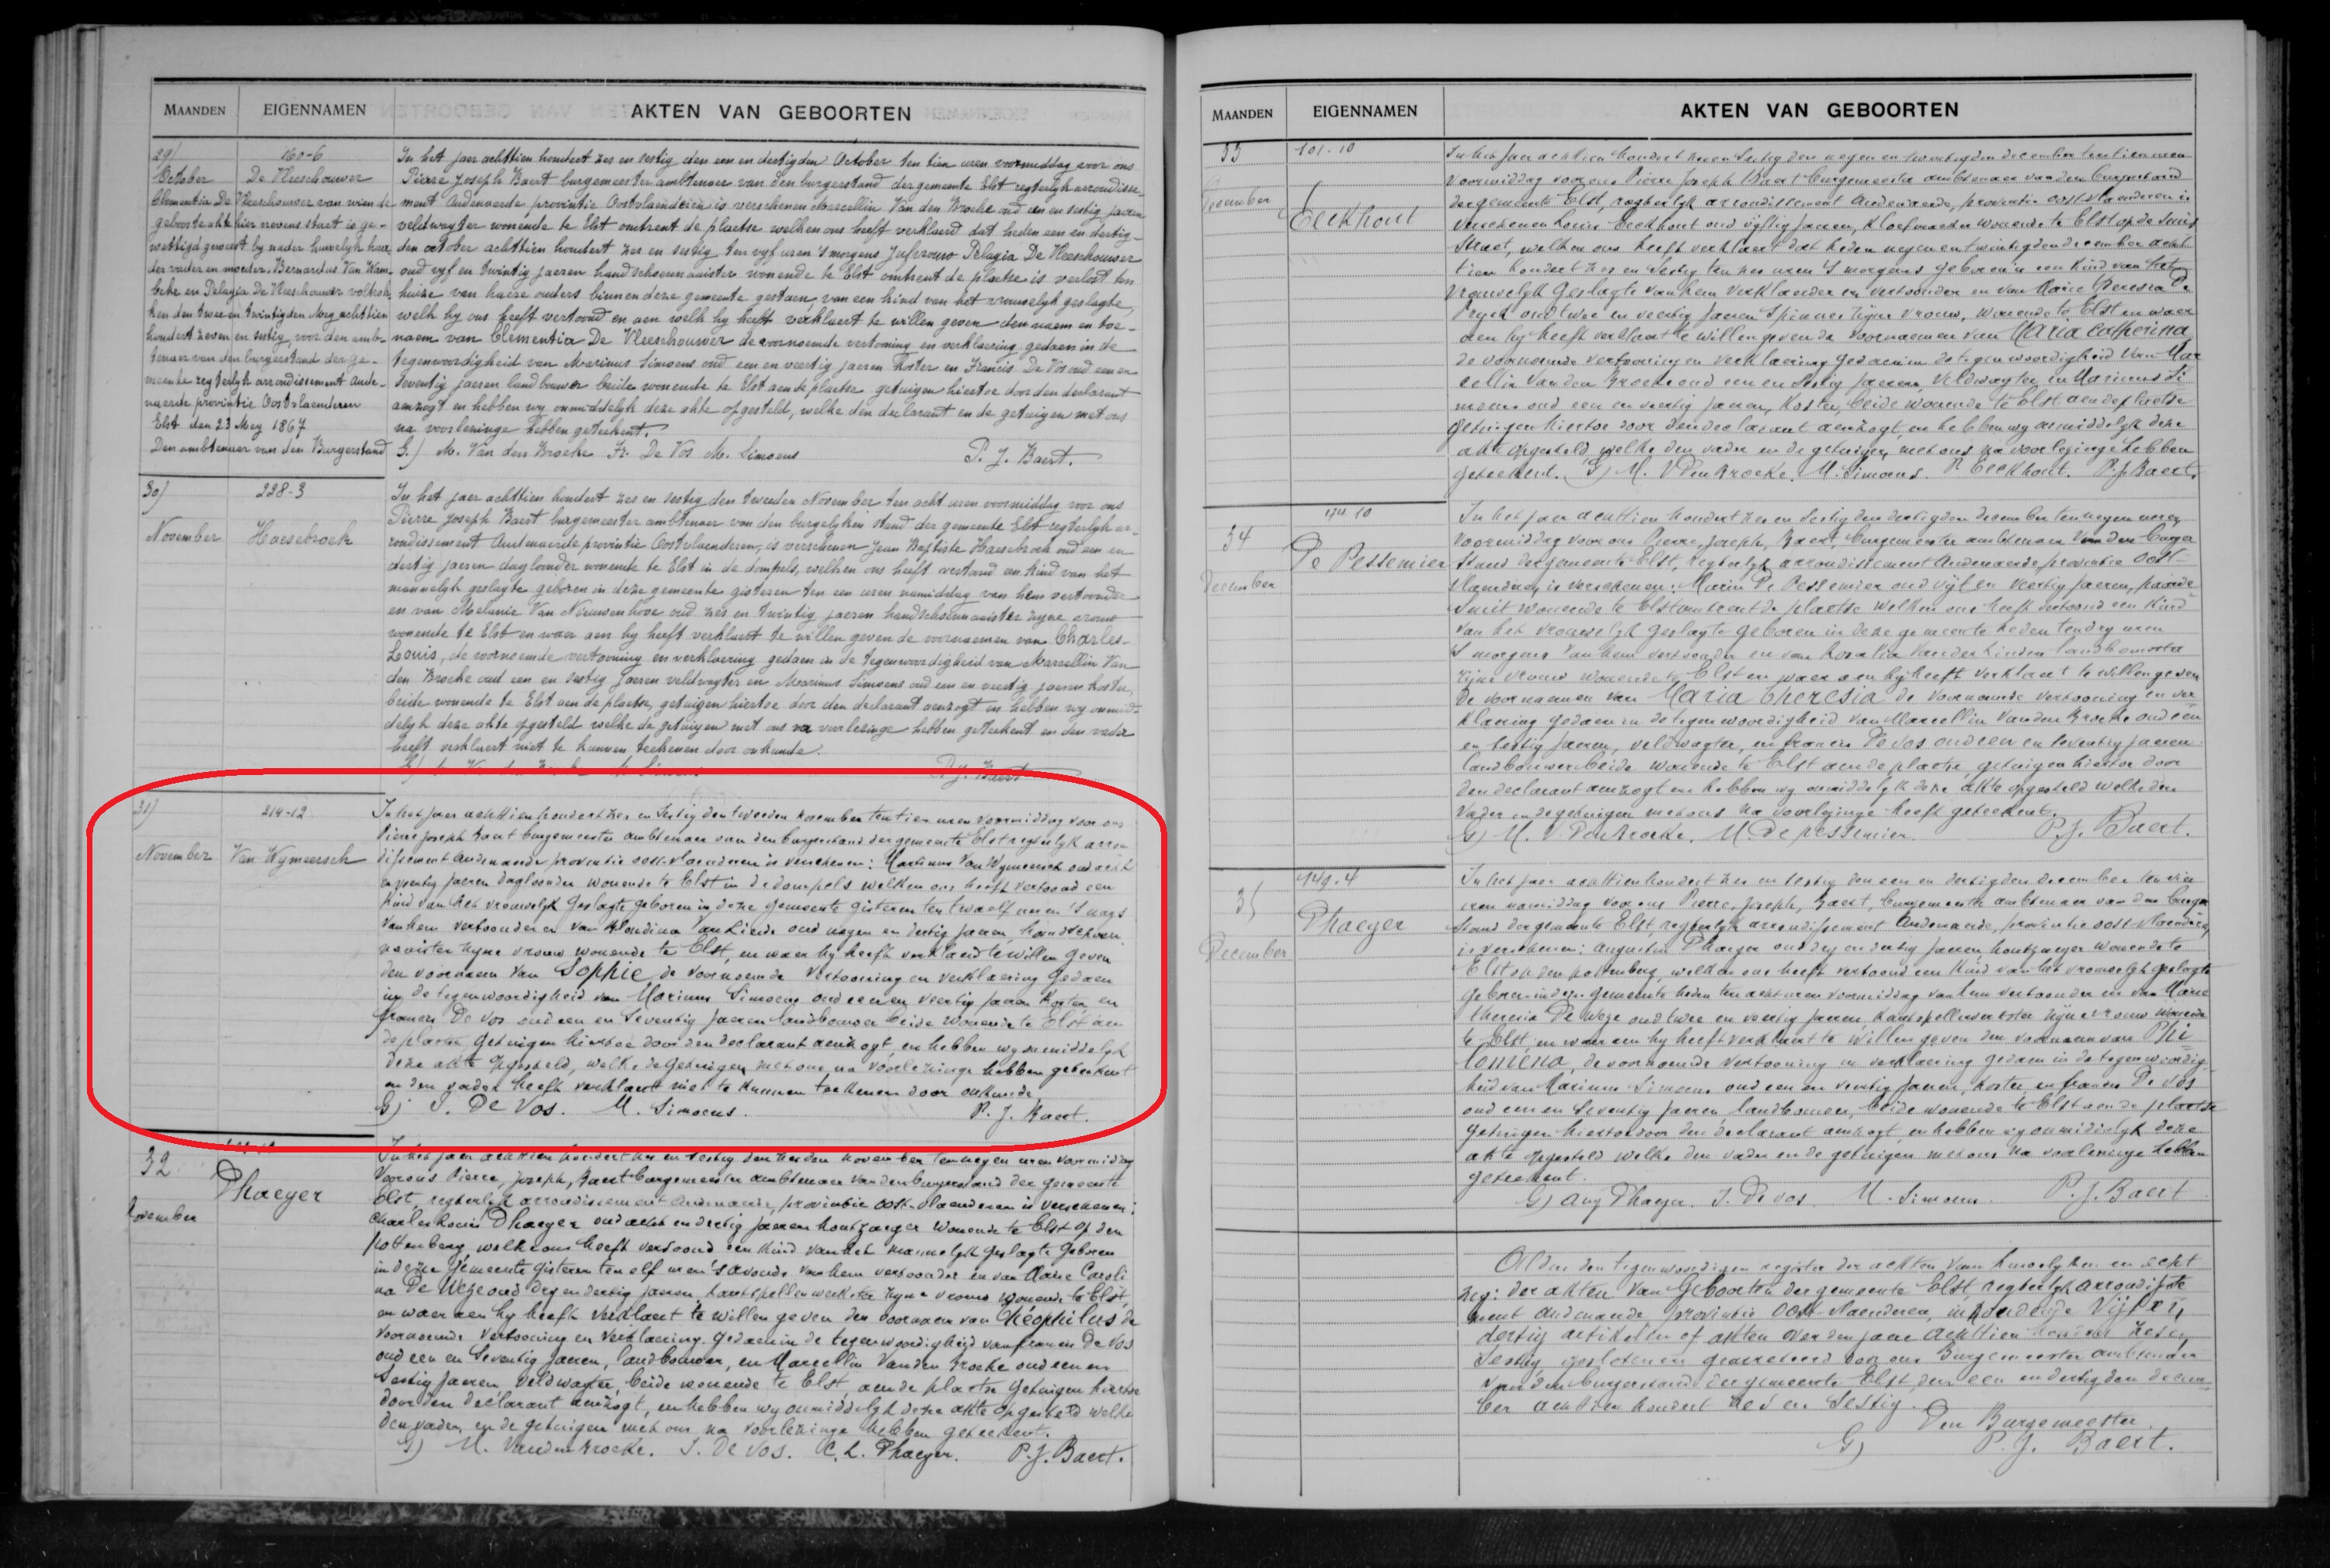 MAANDEN EIGENNAMEN AKTEN VAN GEBOORTEN
29) 160-6
October De Vleeschouwer
Clementia De Vleeschouwer van wien de
geboorte akte hier nevens staet is ge-
wettigd geweest by nader huwelyk haer
der vader en moeder Bernardus Van
en Pelagia De Vleeschouwer voltrok
ken den twee en twintigden Mey achttien
hondert zeven en sestig, voor den amb-
tenaer van den burgerstand der ge-
meente regterlyk arrondissement Aude-
naerde provintie Oostvlaenderen
Elst den 23 Mey 1867
Den ambtenaer van den Burgerstand
In het jaer achttien hondert zes en sestig den een en dertigden October ten tien uren voormiddag voor ons
Pierre Joseph Baert burgemeester ambtenaer van den burgerstand der gemeente Elst regterlyk arrondisse-
ment Audenaerde, provintie Oostvlaenderen is verschenen Marcellin Van den Broeke oud een en sestig jaeren
veldwagter wonende te Elst omtrent de plaetse welken ons heeft verklaerd dat heden een en dertig-
den october achttien hondert zes en sestig ten vyf uren 's morgens Jufvrouw Pelagia De Vleeschouwer
oud vyf en twintig jaeren handschoennaister wonende te Elst omtrent de plaetse is verlost ten
huize van haere ouders binnen deze gemeente gestaen, van een kind van het vrouwelyk geslagte,
welk hy ons heeft vertoond en aen welk hy heeft verklaert te willen geven den naem en toe-
naem van Clementia De Vleeschouwer de voornoemde vertooning en verklaering gedaen in de
tegenwoordigheid van Marinus Simoens oud een en veertig jaeren Koster en Francis De Vos oud een en
seventig jaeren landbouwer beide wonende te Elst aen de plaetse getuigen hiertoe door den declarant
aenzogt en hebben wy onmiddelyk deze akte opgesteld, welke den declarant en de getuigen met ons
na voorlezinge hebben geteekent.
G.) M. Van den Broeke Fr. De Vos M. Simoens P. J. Baert.
30) 228-3
November Haesebroek
In het jaer achttien hondert zes en sestig den tweeden November ten acht uren voormiddag voor ons
Pierre Joseph Baert burgemeester ambtenaer van den burgelyken stand der gemeente Elst regterlyk ar-
rondissement Audenaerde provintie Oostvlaenderen, is verschenen Jean Baptiste Haesebroek oud een en
dertig jaeren daglooner wonende te Elst in de dompels, welken ons heeft vertoond een kind van het
mannelyk geslagte geboren in deze gemeente gisteren ten een uren namiddag van hem vertoonder
en van Melanie Van Nieuwenhove oud zes en twintig jaeren handschoennaister zyne vrouw
wonende te Elst en waer aen hy heeft verklaert te willen geven de voornaemen van Charles-
Louis, de voornoemde vertooning en verklaering gedaen in de tegenwoordigheid van Marcellin Van
den Broeke oud een en sestig jaeren veldwagter en Marinus Simoens oud een en veertig jaeren koster,
beide wonende te Elst aen de plaetse, getuigen hiertoe door den declarant aenzogt en hebben wy onmid-
delyk deze akte opgesteld welke de getuigen met ons na voorlezinge hebben geteekent en den vader
heeft verklaert niet te kunnen teekenen door onkunde.
P. J. Baert
31) 214-12
November Van Wymeersch
In het jaer achttien hondert zes en sestig den tweeden november ten tien uren voormiddag voor ons
Pierre Joseph Baert burgemeester ambtenaer van den burgerstand der gemeente Elst regterlyk arron
dissement Audenaerde provintie oost-vlaenderen is verschenen: Martinus Van Wymeersch oud acht
en veertig jaeren daglooner wonende te Elst in de dompels welken ons heeft vertoond een
kind van het vrouwelyk geslagte geboren in deze gemeente gisteren ten twaelf uren 's nags
van hem vertoonder en van Blondina Van Liende oud negen en dertig jaeren, handschoen
naister zyne vrouw wonende te Elst, en waer hy heeft verklaerd te willen geven
den voornaem van Sophie, de voornoemde vertooning en verklaering gedaen
in de tegenwoordigheid van Marinus Simoens oud een en veertig jaeren Koster, en
francis De Vos oud een en seventig jaeren landbouwer beide wonende te Elst aen
de plaetse getuigen hiertoe door den declarant aenzogt, en hebben wy onmiddelyk
deze akte opgesteld, welke de getuigen met ons na voorlezinge hebben geteekent
en den vader heeft verklaert niet te kunnen teekenen door onkunde.
G) F. De Vos. M. Simoens. P. J. Baert.
32
november Dhaeyer
In het jaer achttien hondert zes en sestig den november ten negen uren voormiddag
voor ons Pierre, Joseph, Baert burgemeester ambtenaer van den burgerstand der gemeente
Elst, regterlyk arrondissement Audenaerde, provintie oost-vlaenderen is verschenen:
Charles Louis Dhaeyer oud acht en dertig jaeren houtzaeger wonende te Elst op den
pottenberg, welke ons heeft vertoond een kind van het mannelyk geslagte geboren
in deze gemeente gisteren ten elf uren 's avonds van hem vertoonder en van Marie Caroli
na De Weze oud dry en dertig jaeren, kantspellewerkster zyne vrouw wonende te Elst,
en waer aen hy heeft verklaert te willen geven den voornaem van Théophilus de
voornoemde vertooning en verklaering gedaen in de tegenwoordigheid van francis De Vos
oud een en seventig jaeren, landbouwer, en Marcellin Vanden Broeke oud een en
sestig jaeren veldwagter, beide wonende te Elst, aen de plaetse getuigen hiertoe
door den declarant aenzogt, en hebben wy onmiddelyk deze akte opgesteld welke
den vader en de getuigen met ons na voorlezinge hebben geteekent.
G) M. Vanden Broeke. F. De Vos. C. L. Dhaeyer. P. J. Baert.
MAANDEN EIGENNAMEN AKTEN VAN GEBOORTEN
33 101-10
December Eeckhout
In het jaer achttien hondert zes en sestig den negen en twintigden december ten tien uren
voormiddag voor ons Pierre Joseph Baert burgemeester ambtenaer van den burgerstand
der gemeente Elst, regterlyk arrondissement Audenaerde, provintie oost-vlaenderen is
verschenen Louis Eeckhout oud vijftig jaeren, wonende te Elst op de
straet, welken ons heeft verklaert dat heden negen en twintigden december acht
tien hondert zes en sestig ten zes uren 's morgens geboren is een kind van het
vrouwelyk geslagte van hem verklaerder en vertoonder en van Marie Theresia De
oud twee en veertig jaeren spinnes zyne vrouw, wonende te Elst en waer
aen hy heeft verklaert te willen geven de voornaemen van Maria Catherina
de voornoemde vertooning en verklaering gedaen in de tegenwoordigheid van Mar
cellin Van den Broeke oud een en sestig jaeren, veldwagter en Marinus Si
moens oud een en veertig jaeren, Koster, beide wonende te Elst aen de plaetse
getuigen hiertoe door den declarant aenzogt, en hebben wy onmiddelyk deze
akte opgesteld welke den vader en de getuigen met ons na voorlezinge hebben
geteekent. G) M. VDenBroeke. M. Simoens. Eeckhout. P. J. Baert.
34 174-10
December De Pessemier
In het jaer achttien hondert zes en sestig den dertigden december ten negen uren
voormiddag voor ons Pierre, Joseph, Baert, burgemeester ambtenaer van den burger
stand der gemeente Elst, regterlyk arrondissement Audenaerde provintie oost-
vlaenderen, is verschenen: De Pessemier oud vijf en veertig jaeren, paarde
smit wonende te Elst omtrent de plaetse welken ons heeft vertoond een kind
van het vrouwelyk geslagte geboren in deze gemeente heden ten dry uren
's morgens van hem vertoonder en van Rosalia Vander Linden
zyne vrouw wonende te Elst en waer aen hy heeft verklaert te willen geven
de voornaemen van Maria Theresia de voornoemde vertooning en ver
klaering gedaen in de tegenwoordigheid van Marcellin Vanden Broeke oud een
en sestig jaeren, veldwagter, en francis De Vos oud een en seventig jaeren
landbouwer beide wonende te Elst aen de plaetse, getuigen hiertoe door
den declarant aenzogt en hebben wy onmiddelyk deze akte opgesteld welke den
vader en de getuigen met ons na voorlezinge heeft geteekent.
G) M. V. Den Broeke. M. De Pessemier. P. J. Baert.
35 149-4
December Dhaeyer
In het jaer achttien hondert zes en sestig den een en dertigden december ten vier
uren namiddag voor ons Pierre, Joseph, Baert, burgemeester ambtenaer van den burger
stand der gemeente Elst, regterlyk arrondissement Audenaerde, provintie oost-vlaenderen
is verschenen: Augustin Dhaeyer oud dry en dertig jaeren, houtzaeger wonende te
Elst op den pottenberg, welken ons heeft vertoond een kind van het vrouwelyk geslagte
geboren in deze gemeente heden ten acht uren voormiddag van hem vertoonder en van Marie
Theresia De Weze oud twee en veertig jaeren, kantspellewerkster zyne vrouw wonende
te Elst, en waer aen hy heeft verklaert te willen geven den voornaem van Phi
lomena, de voornoemde vertooning en verklaering gedaen in de tegenwoordig
heid van Marinus Simoens oud een en veertig jaeren, koster, en francis De Vos
oud een en seventig jaeren landbouwer, beide wonende te Elst aen de plaetse
getuigen hiertoe door den declarant aenzogt, en hebben wy onmiddelyk deze
akte opgesteld welke den vader en de getuigen met ons na voorlezinge hebben
geteekent.
G) Aug Dhaeyer. F. De Vos. M. Simoens. P. J. Baert
den tegenwoordigen register der akten van huwelyken en echt
zeg: der akten van Geboorten der gemeente Elst, regterlyk arrondisse
ment Audenaerde provintie Oost-Vlaenderen, inhoudende Vijf en
dertig artikelen of akten over den jaere achttien hondert zes en
sestig, gesloten en gearreteerd door ons Burgemeester ambtenaer
van den burgerstand der gemeente Elst, den een en dertigden decem-
ber achttien hondert zes en sestig.
Den Burgemeester.
G) P. J. Baert.